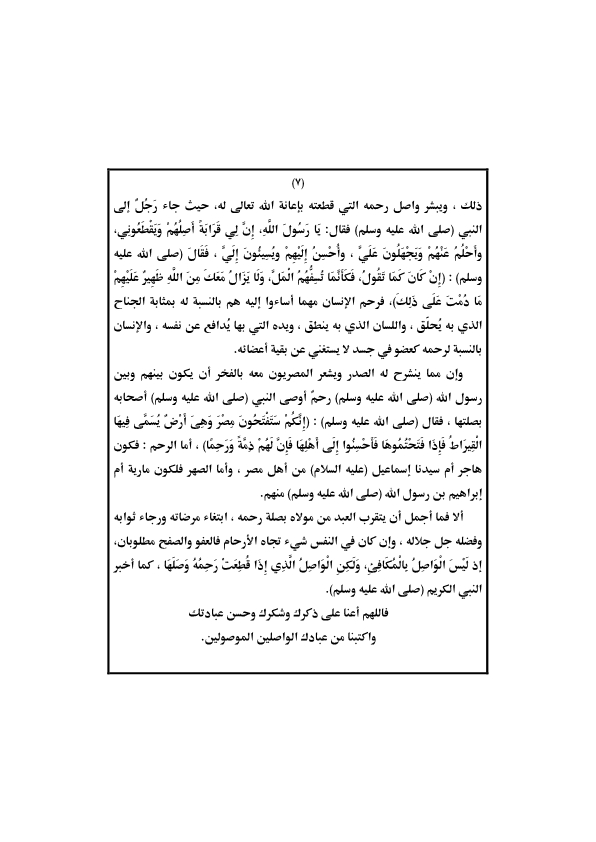 (٧)
ذلك ، ويبشر واصل رحمه التي قطعته بإعانة الله تعالى له، حيث جاء رَجُلٌ إلى
النبي (صلى الله عليه وسلم) فقال: يَا رَسُولَ اللَّهِ، إِنَّ لِي قَرَابَةً أَصِلُهُمْ وَيَقْطَعُوني،
وَأَحْلُمُ عَنْهُمْ وَيَجْهَلُونَ عَلَيَّ ، وأُحْسِنُ إِلَيْهِمْ ويُسِيئُونَ إِلَيَّ ، فَقَالَ (صلى الله عليه
وسلم) : (إِنْ كَانَ كَمَا تَقُولُ، فَكَأَنَّمَا تُسِفُّهُمُ الْمَلَّ، وَلَا يَزَالُ مَعَكَ مِنَ اللَّهِ ظَهِيرٌ عَلَيْهِمْ
مَا دُمْتَ عَلَى ذَلِكَ)، فرحم الإنسان مهما أساءوا إليه هم بالنسبة له بمثابة الجناح
الذي به يُحلّق ، واللسان الذي به ينطق ، ويده التي بها يُدافع عن نفسه ، والإنسان
بالنسبة لرحمه كعضو في جسد لا يستغني عن بقية أعضائه.
وإن مما ينشرح له الصدر ويشعر المصريون معه بالفخر أن يكون بينهم وبين
رسول الله (صلى الله عليه وسلم) رحمٌ أوصى النبي (صلى الله عليه وسلم) أصحابه
بصلتها ، فقال (صلى الله عليه وسلم) : (إِنَّكُمْ سَتَفْتَحُونَ مِصْرَ وَهِيَ أَرْضٌ يُسَمَّى فِيهَا
الْقِيرَاطُ فَإِذَا فَتَحْتُمُوهَا فَأَحْسِنُوا إِلَى أَهْلِهَا فَإِنَّ لَهُمْ ذِمَّةً وَرَحِمًا) ، أما الرحم : فكون
هاجر أم سيدنا إسماعيل (عليه السلام) من أهل مصر ، وأما الصهر فلكون مارية أم
إبراهيم بن رسول الله (صلى الله عليه وسلم) منهم.
ألا فما أجمل أن يتقرب العبد من مولاه بصلة رحمه ، ابتغاء مرضاته ورجاء ثوابه
وفضله جل جلاله ، وإن كان في النفس شيء تجاه الأرحام فالعفو والصفح مطلوبان،
إذ لَيْسَ الْوَاصِلُ بِالْمُكَافِئِ، وَلَكِنِ الْوَاصِلُ الَّذِي إِذَا قُطِعَتْ رَحِمُهُ وَصَلَهَا ، كما أخبر
النبي الكريم (صلى الله عليه وسلم).
فاللهم أعنا على ذكرك وشكرك وحسن عبادتك
واكتبنا من عبادك الواصلين الموصولين.